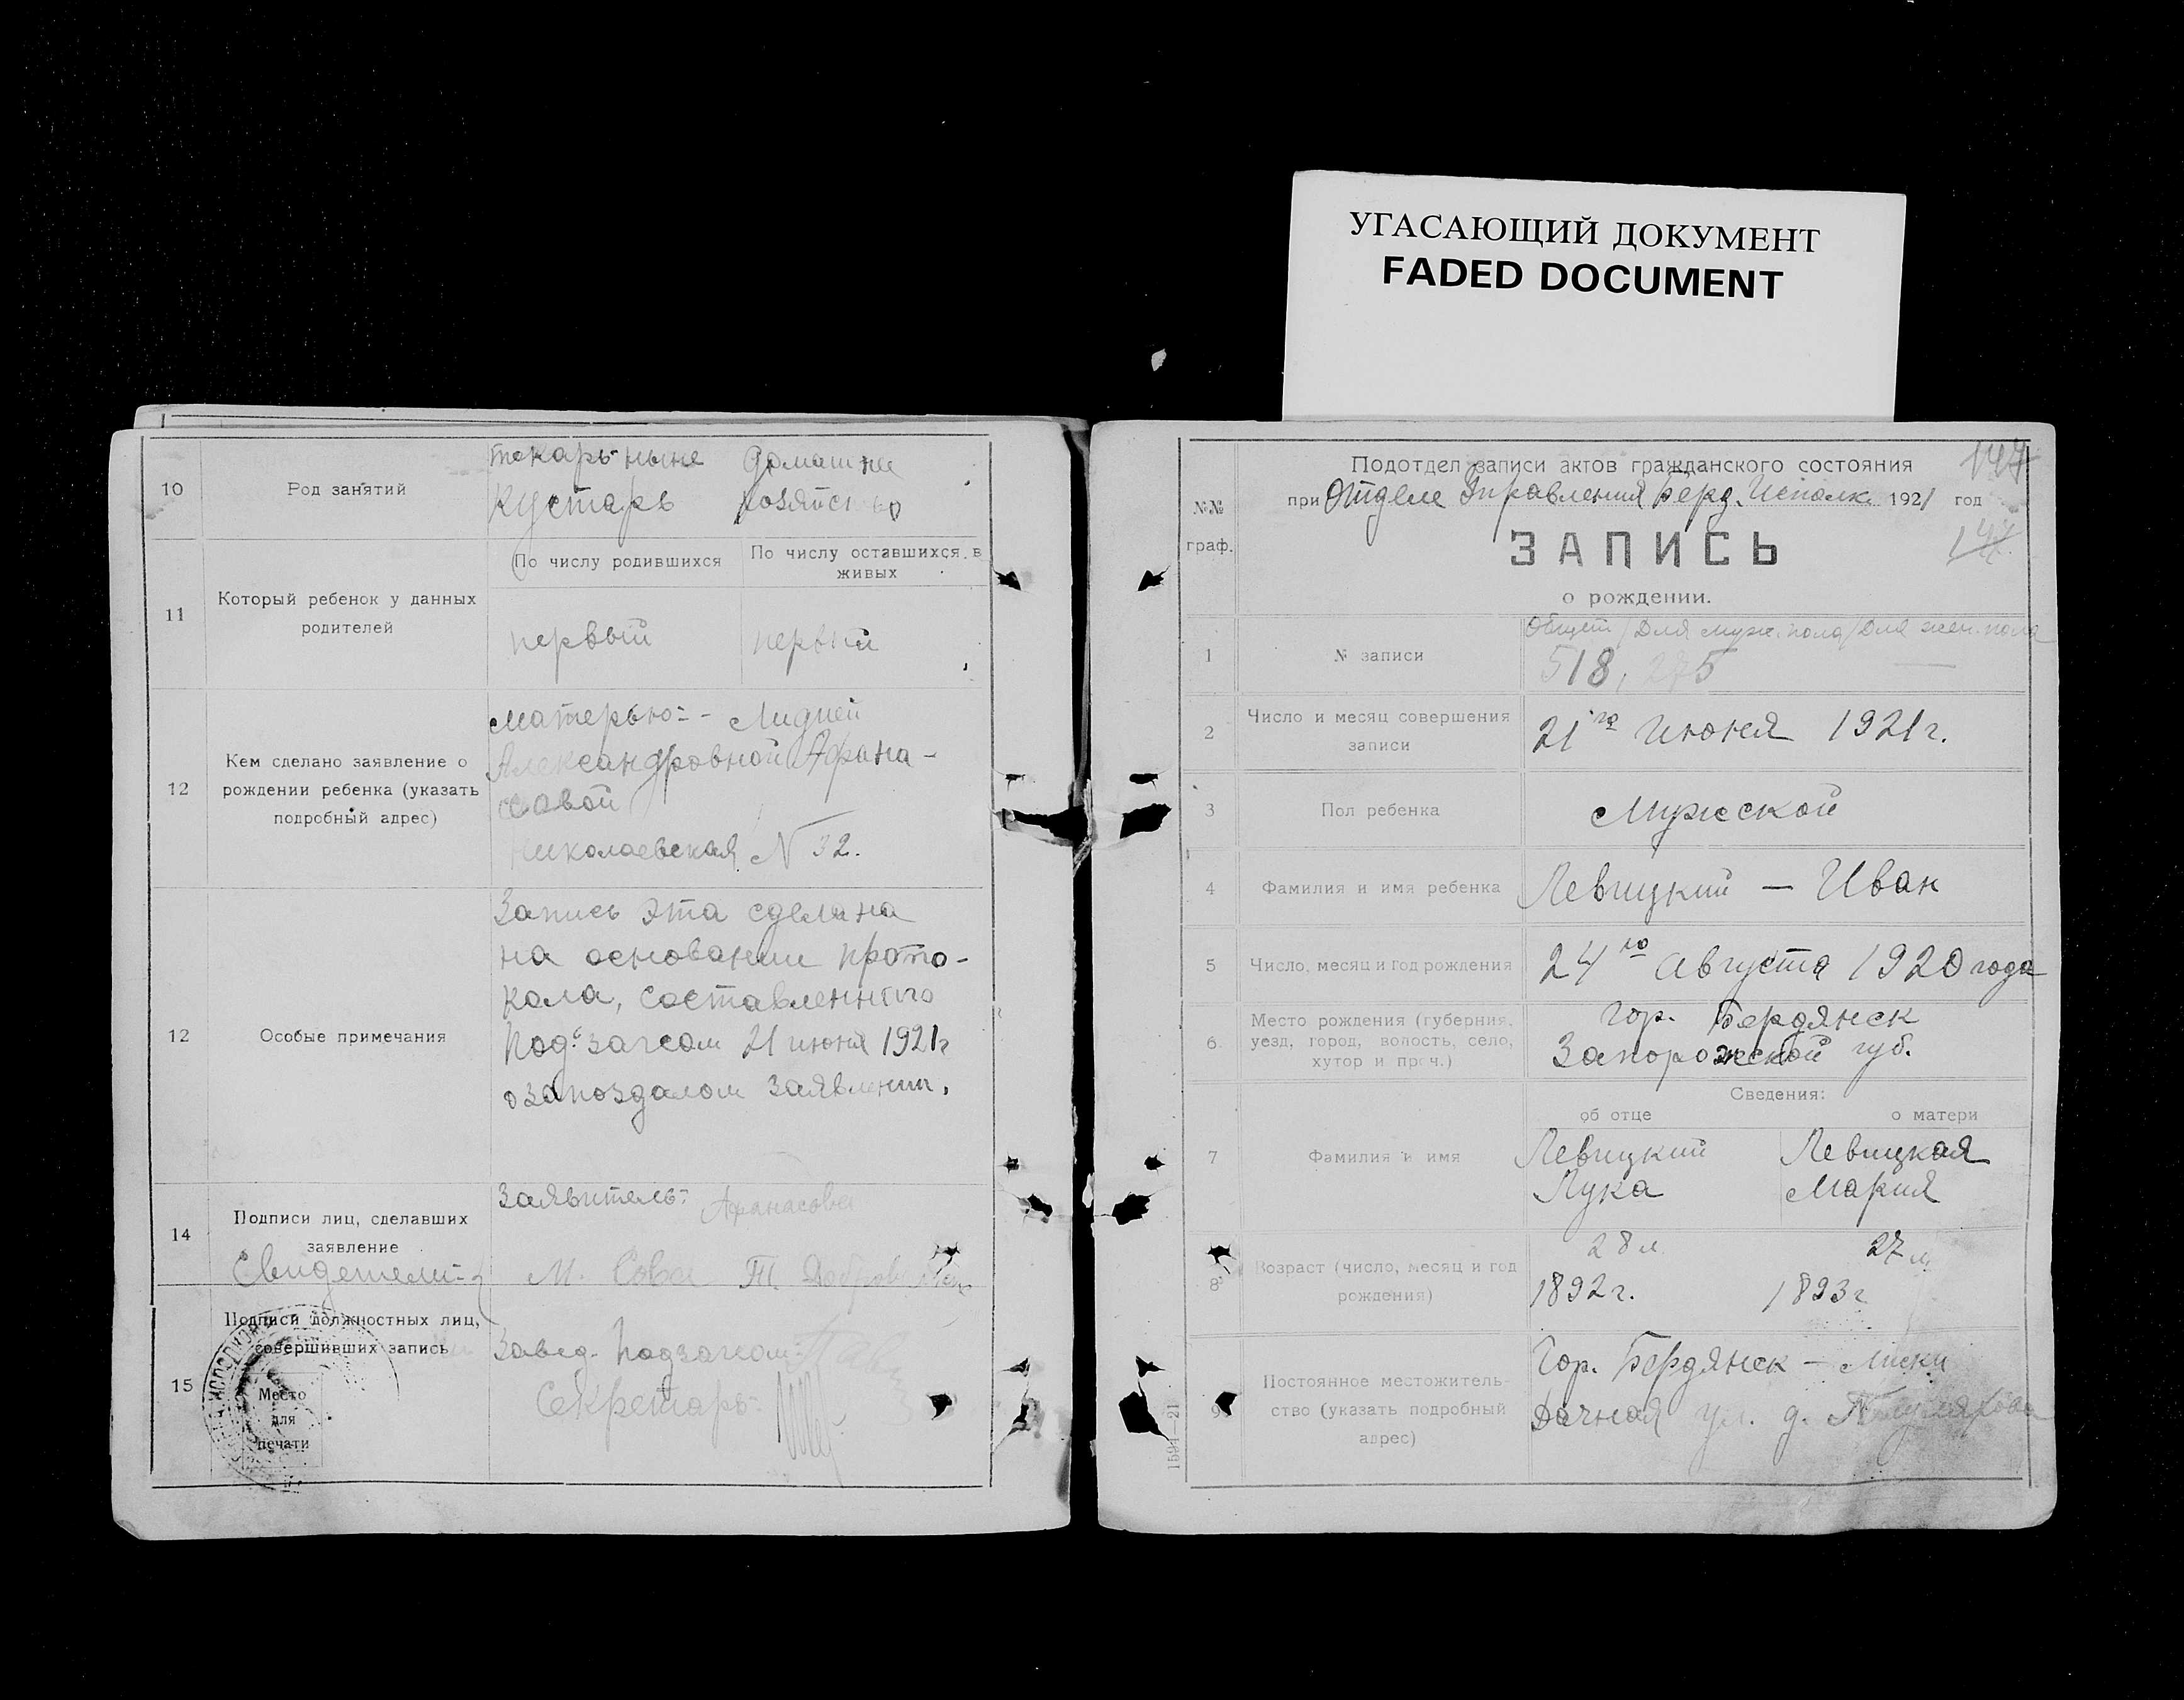 УГАСАЮЩИЙ ДОКУМЕНТ
FADED DOCUMENT
10
Род занятий
токарь ныне
кустарь
домашнее
хозяйство
11
Который ребенок у данных
родителей
По числу родившихся
По числу оставшихся в
живых
первый
первый
12
Кем сделано заявление о
рождении ребенка (указать
подробный адрес)
матерью - Лидией
Александровной Афана-
совой
Николаевская N 32.
12
Особые примечания
Запись эта сделана
на основании прото-
кола, составленного
Подзагсом 21 июня 1921г
о запоздалом заявлении.
14
Подписи лиц, сделавших
заявление
Свидетели
Заявитель: Афанасова
М. Сова
15
Подписи должностных лиц,
совершивших запись
Место
для
печати
Завед. Подзагсом:
Секретарь
147
№№
граф.
Подотдел записи актов гражданского состояния
при Отделе Управления Берд. Исполк. 1921 год
147
ЗАПИСЬ
о рождении.
1
№ записи
Общий / Для муж. пола / Для жен. пола
518, 275 —
2
Число и месяц совершения
записи
21го Июня 1921г.
3
Пол ребенка
Мужской
4
Фамилия и имя ребенка
Левицкий — Иван
5
Число, месяц и год рождения
24го августа 1920 года
6
Место рождения (губерния,
уезд, город, волость, село,
хутор и проч.)
гор. Бердянск
Запорожской губ.
Сведения:
об отце
о матери
7
Фамилия и имя
Левицкий
Лука
Левицкая
Мария
8
Возраст (число, месяц и год
рождения)
28 л.
1892г.
27 л.
1893г
9
Постоянное местожитель-
ство (указать подробный
адрес)
Гор. Бердянск - Лиски
Дачная ул. д.
1594—21